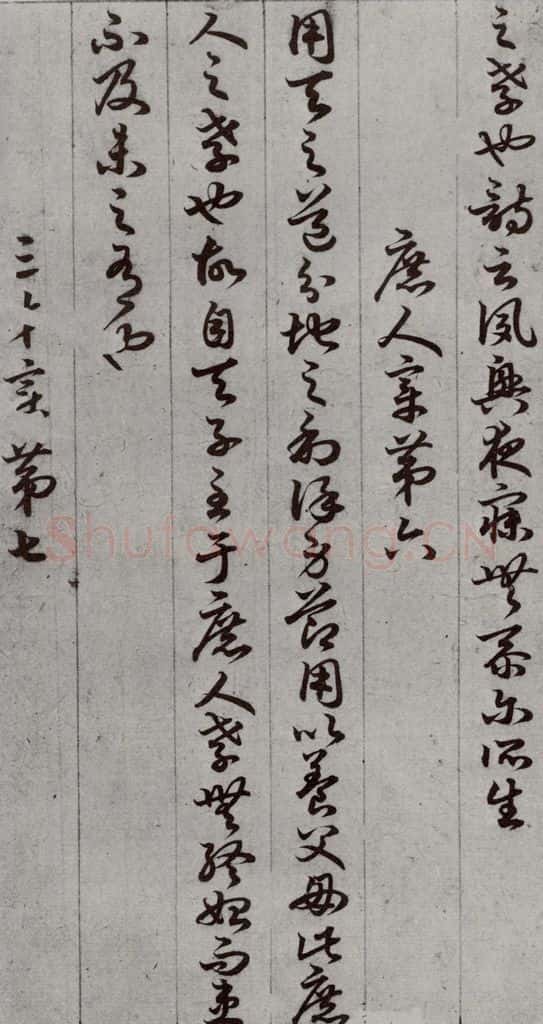 之孝也詩云夙興夜寐無忝尔所生
庶人章第六
用天之道分地之利謹身節用以養父母此庶
人之孝也故自天子至于庶人孝無終始而患
不及未之有也
三才章第七
Shufawang.CN